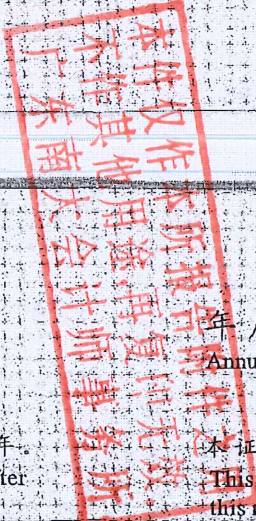 本件仅作本所报告附件
不作其他用途再复印无效
广东南大会计师事务所
年
Annu
年。
ter
本 证
This
this